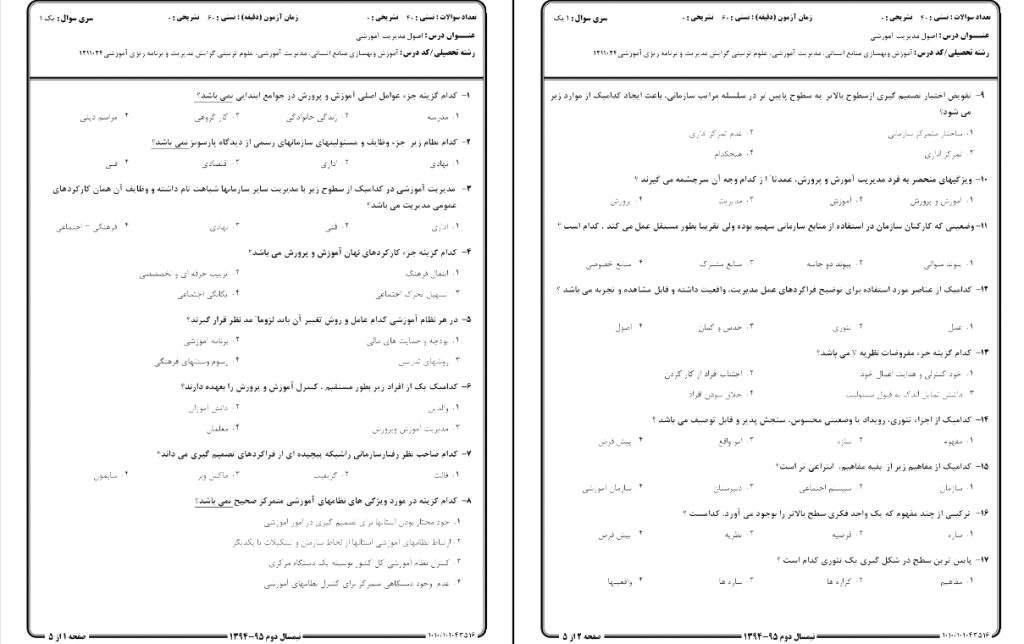 تعداد سوالات : تستی : ۴۰ تشریحی : ۰
زمان آزمون (دقیقه) : تستی : ۶۰ تشریحی : ۰
سری سوال : یک ۱
عنـــوان درس : اصول مدیریت آموزشی
رشته تحصیلی/کد درس : آموزش وبهسازی منابع انسانی، مدیریت آموزشی، علوم تربیتی گرایش مدیریت و برنامه ریزی آموزشی ۱۲۱۱۰۲۴
۱- کدام گزینه جزء عوامل اصلی آموزش و پرورش در جوامع ابتدایی نمی باشد؟
۱. مدرسه ۲. زندگی خانوادگی ۳. کار گروهی ۴. مراسم دینی
۲- کدام نظام زیر جزء وظایف و مسئولیتهای سازمانهای رسمی از دیدگاه پارسونز نمی باشد؟
۱. نهادی ۲. اداری ۳. اقتصادی ۴. فنی
۳- مدیریت آموزشی در کدامیک از سطوح زیر با مدیریت سایر سازمانها شباهت تام داشته و وظایف آن همان کارکردهای
عمومی مدیریت می باشد؟
۱. اداری ۲. فنی ۳. نهادی ۴. فرهنگی – اجتماعی
۴- کدام گزینه جزء کارکردهای نهان آموزش و پرورش می باشد؟
۱. انتقال فرهنگ ۲. تربیت حرفه ای و تخصصصی
۳. تسهیل تحرک اجتماعی ۴. یگانگی اجتماعی
۵- در هر نظام آموزشی کدام عامل و روش تغییر آن باید لزوماً مد نظر قرار گیرند؟
۱. بودجه و حمایت های مالی ۲. برنامه آموزشی
۳. روشهای تدریس ۴. رسوم وسنتهای فرهنگی
۶- کدامیک یک از افراد زیر بطور مستقیم ، کنترل آموزش و پرورش را بعهده دارند؟
۱. والدین ۲. دانش آموزان
۳. مدیریت آموزش وپرورش ۴. معلمان
۷- کدام صاحب نظر رفتارسازمانی راشبکه پیچیده ای از فراگردهای تصمیم گیری می داند؟
۱. فالت ۲. گریفیت ۳. ماکس وبر ۴. سایمون
۸- کدام گزینه در مورد ویژگی های نظامهای آموزشی متمرکز صحیح نمی باشد؟
۱. خود مختار بودن استانها برای تصمیم گیری در امور آموزشی
۲. ارتباط نظامهای آموزشی استانها از لحاظ سازمان و تشکیلات با یکدیگر
۳. کنترل نظام آموزشی کل کشور بوسیله یک دستگاه مرکزی
۴. عدم وجود دستگاهی متمرکز برای کنترل نظامهای آموزشی
صفحه ۱ از ۵
نیمسال دوم ۹۵-۱۳۹۴
۱۰۱۰/۱۰۱۰۴۳۵۱۶
تعداد سوالات : تستی : ۴۰ تشریحی : ۰
زمان آزمون (دقیقه) : تستی : ۶۰ تشریحی : ۰
سری سوال : ۱ یک
عنـــوان درس : اصول مدیریت آموزشی
رشته تحصیلی/کد درس : آموزش وبهسازی منابع انسانی، مدیریت آموزشی، علوم تربیتی گرایش مدیریت و برنامه ریزی آموزشی ۱۲۱۱۰۲۴
۹- تفویض اختیار تصمیم گیری ازسطوح بالاتر به سطوح پایین تر در سلسله مراتب سازمانی، باعث ایجاد کدامیک از موارد زیر
می شود؟
۱. ساختار متمرکز سازمانی ۲. عدم تمرکز اداری
۳. تمرکز اداری ۴. هیچکدام
۱۰- ویژگیهای منحصر به فرد مدیریت آموزش و پرورش، عمدتاً ا ز کدام وجه آن سرچشمه می گیرند ؟
۱. آموزش و پرورش ۲. آموزش ۳. مدیریت ۴. پرورش
۱۱- وضعیتی که کارکنان سازمان در استفاده از منابع سازمانی سهیم بوده ولی تقریبا بطور مستقل عمل می کند ، کدام است ؟
۱. پیوند متوالی ۲. پیوند دو جانبه ۳. منابع مشترک ۴. منابع خصوصی
۱۲- کدامیک از عناصر مورد استفاده برای توضیح فراگردهای عمل مدیریت، واقعیت داشته و قابل مشاهده و تجربه می باشد ؟
۱. عمل ۲. تئوری ۳. حدس و گمان ۴. اصول
۱۳- کدام گزینه جزء مفروضات نظریه Y می باشد؟
۱. خود کنترلی و هدایت اعمال خود ۲. اجتناب افراد از کار کردن
۳. داشتن تمایل اندک به قبول مسئولیت ۴. خلاق نبودن افراد
۱۴- کدامیک از اجزاء تئوری، رویداد یا وضعیتی محسوس، سنجش پذیر و قابل توصیف می باشد ؟
۱. مفهوم ۲. سازه ۳. امر واقع ۴. پیش فرض
۱۵- کدامیک از مفاهیم زیر از بقیه مفاهیم، انتزاعی تر است؟
۱. سازمان ۲. سیستم اجتماعی ۳. دبیرستان ۴. سازمان آموزشی
۱۶- ترکیبی از چند مفهوم که یک واحد فکری سطح بالاتر را بوجود می آورد، کدامست ؟
۱. سازه ۲. فرضیه ۳. نظریه ۴. پیش فرض
۱۷- پایین ترین سطح در شکل گیری یک تئوری کدام است ؟
۱. مفاهیم ۲. گزاره ها ۳. سازه ها ۴. واقعیتها
صفحه ۲ از ۵
نیمسال دوم ۹۵-۱۳۹۴
۱۰۱۰/۱۰۱۰۴۳۵۱۶